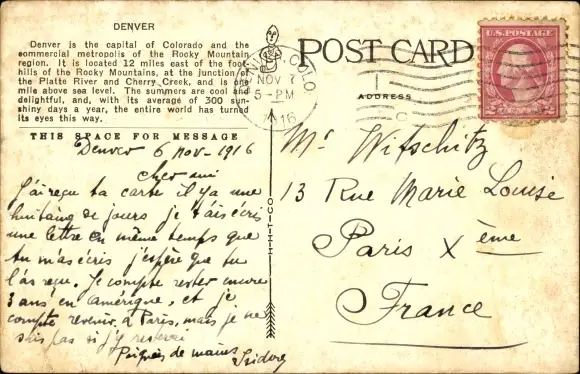 DENVER
Denver is the capital of Colorado and the
commercial metropolis of the Rocky Mountain
region. It is located 12 miles east of the foot-
hills of the Rocky Mountains, at the junction of
the Platte River and Cherry Creek, and is one
mile above sea level. The summers are cool and
delightful, and, with its average of 300 sun-
shiny days a year, the entire world has turned
its eyes this way.
THIS SPACE FOR MESSAGE
Denver 6 nov- 1916
cher ami
J'ai reçu ta carte il y a une
huitaine de jours je t'ais écris
une lettre en même temps que
tu m'as écris j'espère que tu
l'as reçu. Je compte rester encore
3 ans en amérique, et je
compte revenir à Paris, mais je ne
sais pas si j'y resterai
Poignés de mains
Isidore
POST CARD
ADDRESS
DENVER, COLO.
NOV 7
5-PM
1916
U.S. POSTAGE
Mr Witschitz
13 Rue Marie Louise
Paris X ème
France